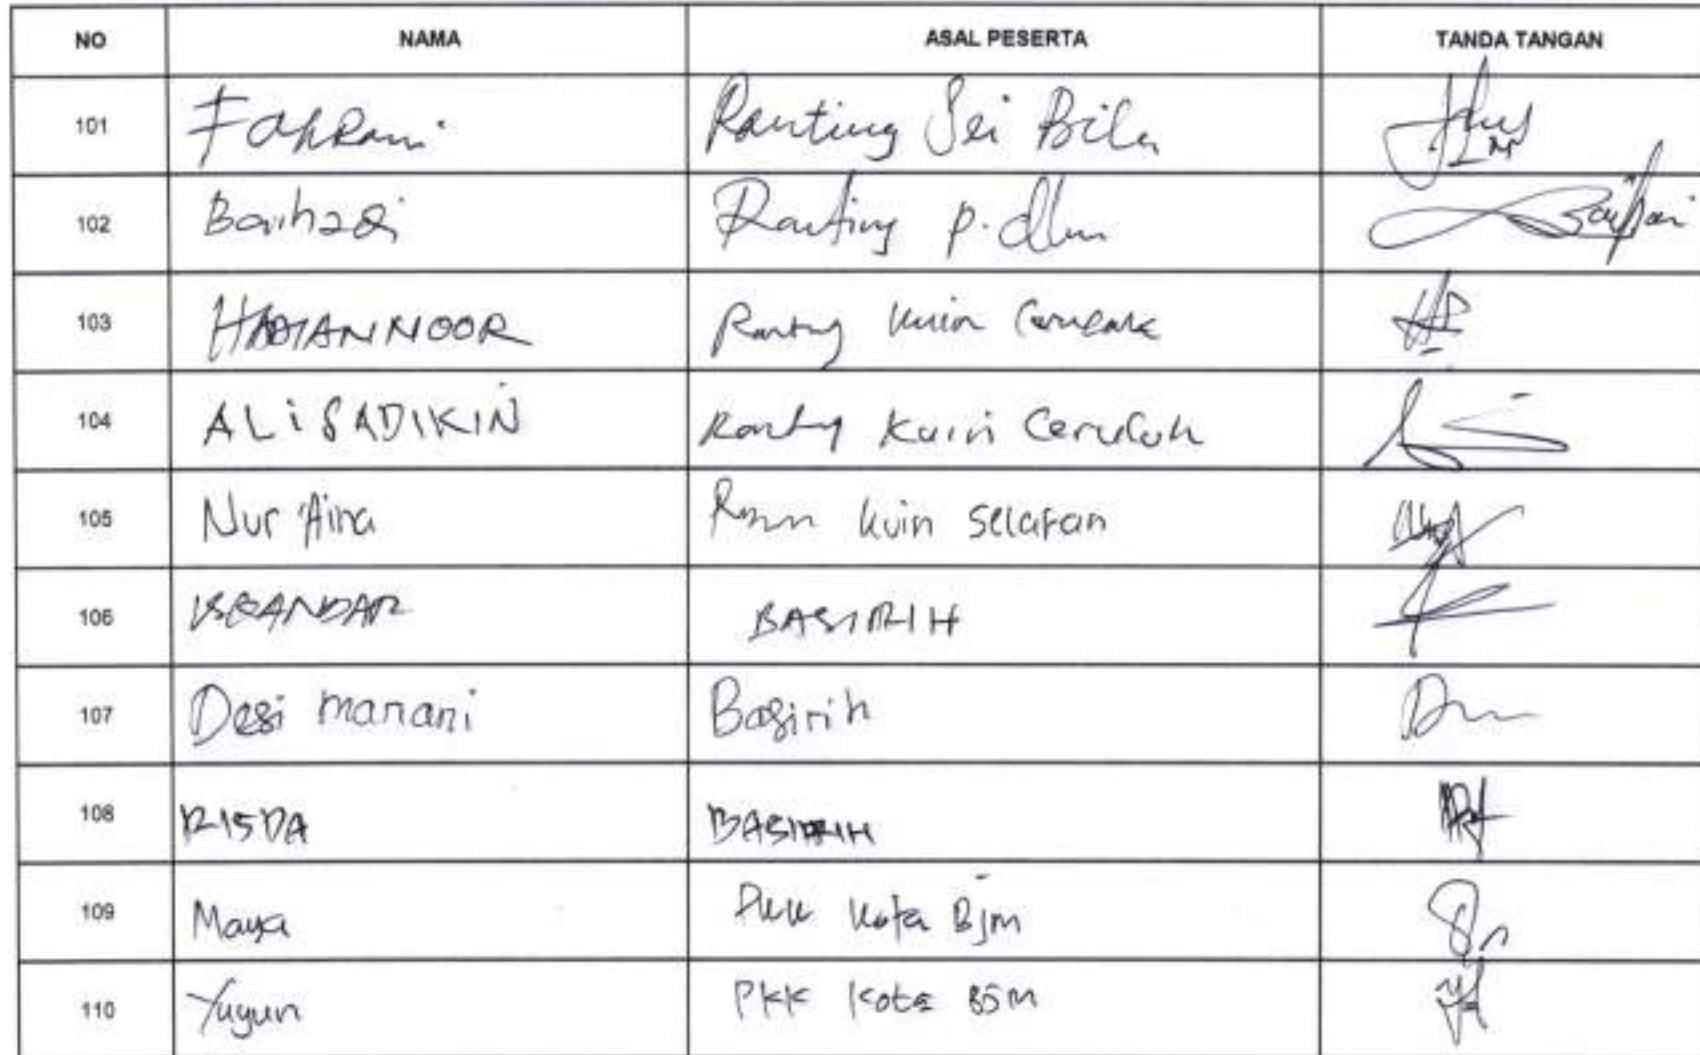 NO NAMA ASAL PESERTA TANDA TANGAN
101 Fahrani Ranting Sei Bilu
102 Baihaqi Ranting P.
103 HADIANNOOR Ranting Kuin Cerucuk
104 ALi SADIKIN Ranting Kuin Cerucuk
105 Nur Aina Kuin Selatan
106 ISKANDAR BASIRIH
107 Desi mariani Basirih
108 RISDA BASIRIH
109 Maya PKK Kota Bjm
110 Yuyun PKK Kota BJM